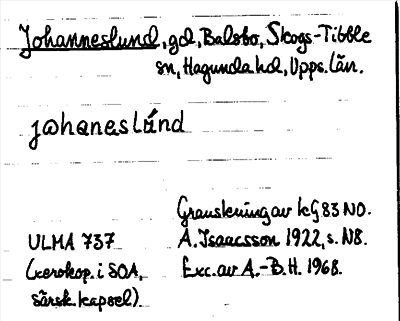 Johanneslund, gd, Balsbo, Skogs-Tibble
sn, Hagunda hd, Upps. län.
johaneslúnd
Granskning av kG 83 NO.
ULMA 737 A. Isaacsson 1922, s. N8.
(xerokop. i SOA, Exc. av A.-B. H. 1968.
särsk. kapsel).